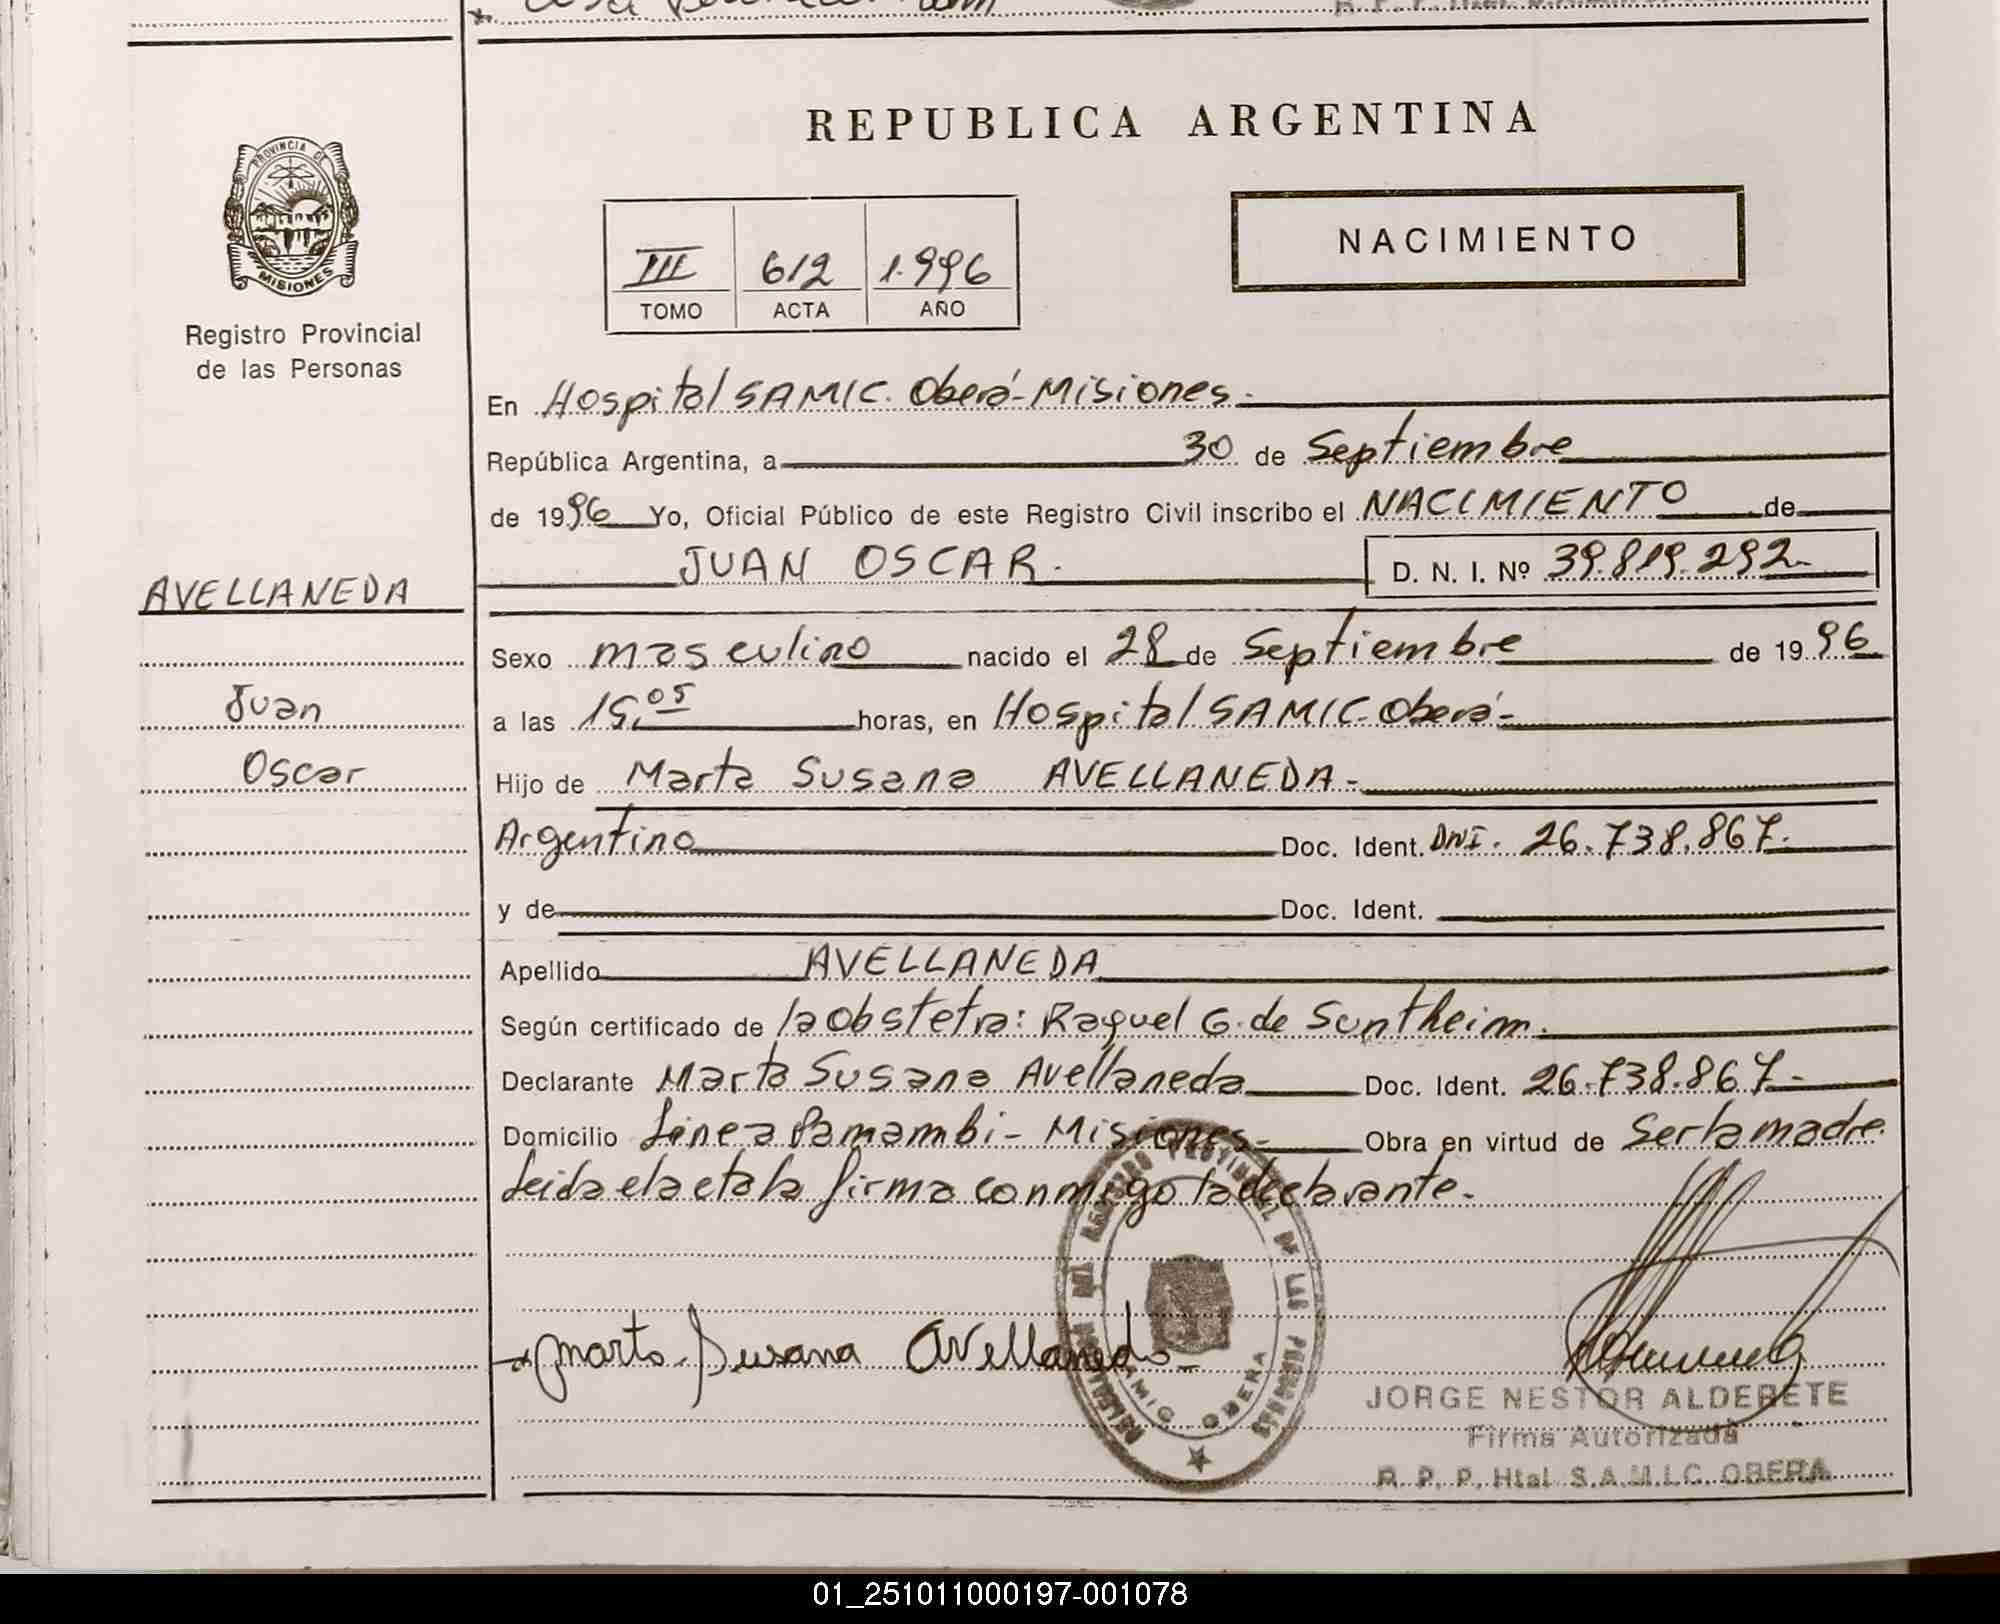 PROVINCIA DE
MISIONES
Registro Provincial
de las Personas
AVELLANEDA
Juan
Oscar
REPUBLICA ARGENTINA
III 612 1.996
TOMO ACTA AÑO
NACIMIENTO
En Hospital SAMIC. Oberá-Misiones.
República Argentina, a 30 de Septiembre
de 1996 Yo, Oficial Público de este Registro Civil inscribo el NACIMIENTO de
JUAN OSCAR. D. N. I. Nº 39.819.292.-
Sexo masculino nacido el 28 de Septiembre de 1996
a las 15,05 horas, en Hospital SAMIC-Oberá-
Hijo de Marta Susana AVELLANEDA-
Argentino Doc. Ident. DNI. 26.738.867.
y de Doc. Ident.
Apellido AVELLANEDA
Según certificado de la obstetra: Raquel G. de Suntheim.
Declarante Marta Susana Avellaneda Doc. Ident. 26.738.867-
Domicilio Línea Pamambi- Misiones- Obra en virtud de Ser la madre
Leida el acta la firma conmigo la declarante.
DELEGACION DEL REGISTRO PROVINCIAL DE LAS PERSONAS
SAMIC OBERA
Marta Susana Avellaneda
JORGE NESTOR ALDERETE
Firma Autorizada
R. P. P. Htal S.A.M.I.C. OBERA
01_251011000197-001078